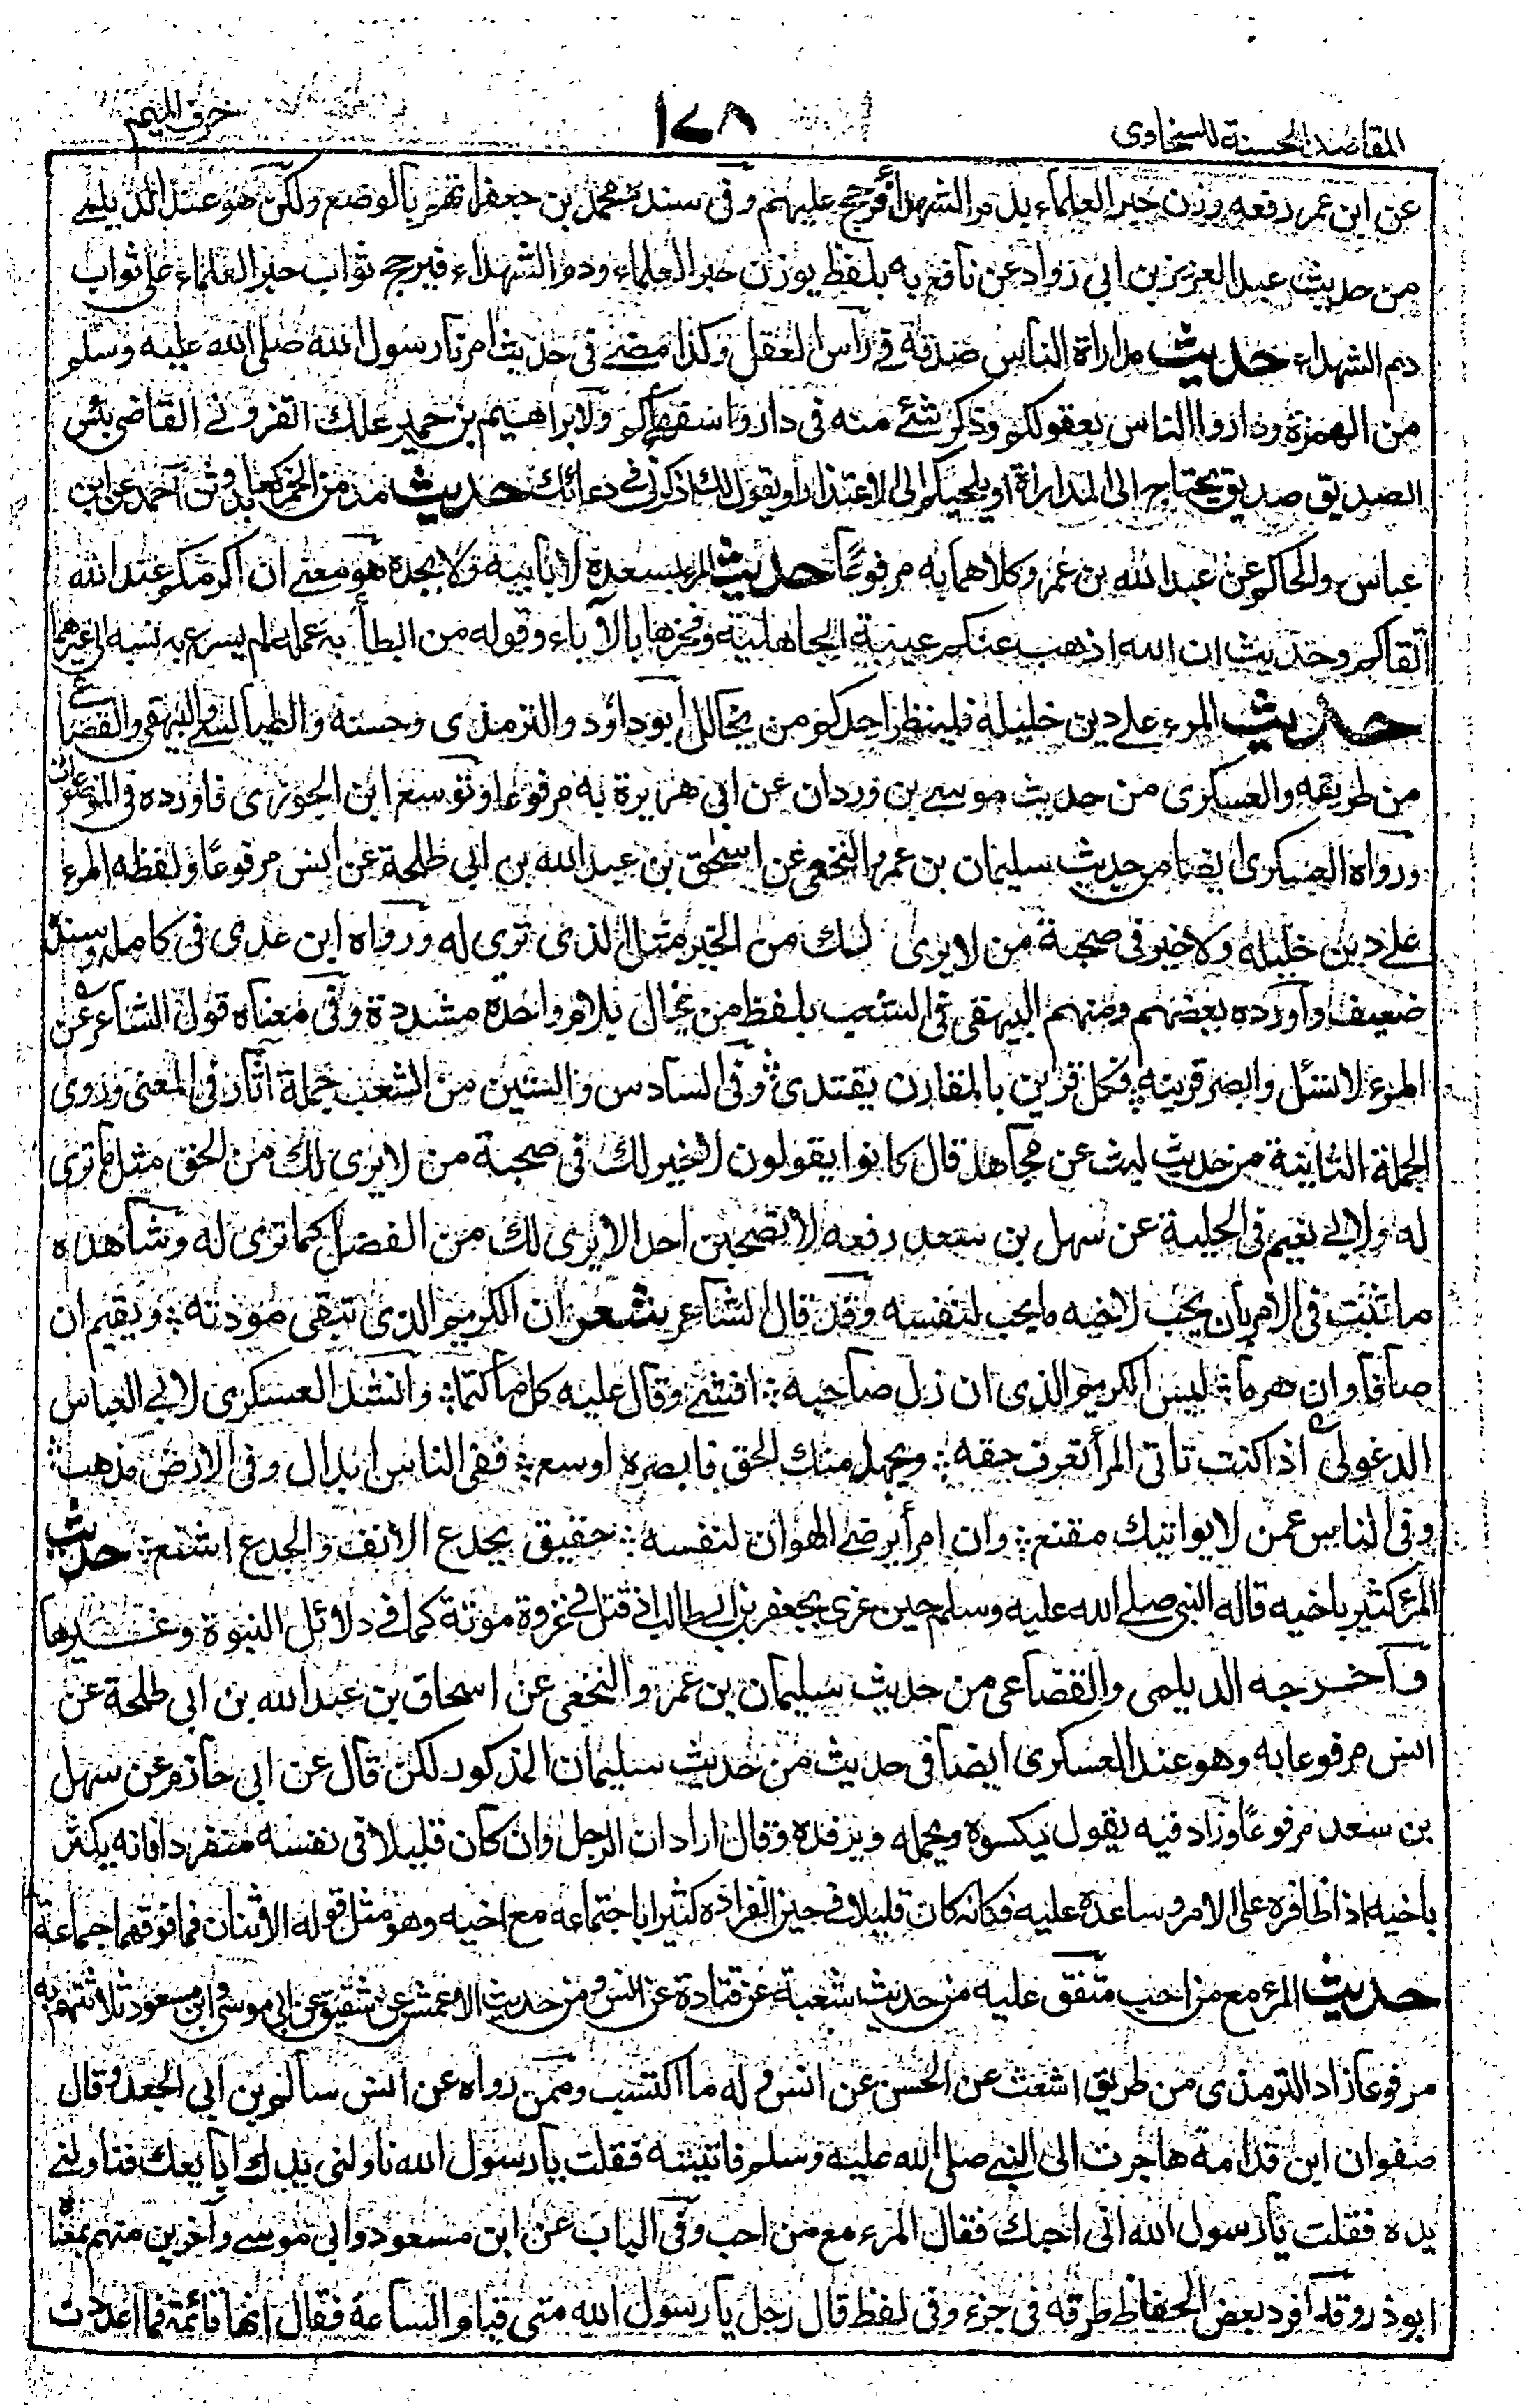 المقاصد الحسنة للسخاوى
١٧٨
حرف الميم
عن ابن عمر رفعه وزن حبر العلماء بدم الشهداء فرجح عليهم وفى سنده محمد بن جعفر اتهم بالوضع ولكن هو عند الديلمى
من حديث عبد العزيز بن ابى رواد عن نافع به بلفظ يوزن حبر العلماء ودم الشهداء فيرجح ثواب حبر العلماء على ثواب
دم الشهداء حديث مداراة الناس صدقة فى رأس العقل وكذا مضے فى حديث امرنا رسول الله صلى الله عليه وسلم
من الهمزة وداروا الناس بعقولكم وذكر شئے منه فى داروا سفهاءكم ولابراهيم بن حمير علك القزونے القاضى بئس
الصديق صديق يحتاج الى المداراة او يلجيكم الى الاعتذار او يقول لك اذكرنى فى دعائك حديث مدمن الخمر كعابد وثن احمد عن ابن
عباس والحاكم عن عبد الله بن عمرو كلاهما به مرفوعًا حديث المرء بسعده لا بابيه ولا بجده هو معنى ان اكرمكم عند الله
اتقاكم وحديث ان الله اذهب عنكم عيبة الجاهلية وفخرها بالآباء وقوله من ابطأ به عمله لم يسرع به نسبه الى غيرهما
حديث المرء على دين خليله فلينظر احدكم من يخالل ابو داود والترمذى وحسنه والطيالسى والبيهقى والقضاعى
من طريقه والعسكرى من حديث موسى بن وردان عن ابى هريرة به مرفوعا وتوسع ابن الجوزى فاورده فى الموضوعات
ورواه العسكرى ايضا من حديث سليمان بن عمرو النخعى عن اسحق بن عبد الله بن ابى طلحة عن انس مرفوعًا ولفظه المرء
على دين خليله ولا خير فى صحبة من لا يرى لك من الخير مثل الذى ترى له ورواه ابن عدى فى كامله وسنده
ضعيف واورده بعضهم ومنهم البيهقى فى الشعب بلفظ من يخال بلام واحدة مشددة وفى معناه قول الشاعر عن
المرء لا تسئل وابصر قرينه ؛ فكل قرين بالمقارن يقتدى ؛ وفى السادس والستين من الشعب جملة آثار فى المعنى وروى
الجملة الثانية من حديث ليث عن مجاهد قال كانوا يقولون لا خير لك فى صحبة من لا يرى لك من الحق مثل ما ترى
له ولابى نعيم فى الحلية عن سهل بن سعد رفعه لا تصحبن احدا لا يرى لك من الفضل كما ترى له وشاهده
ما ثبت فى الامر بان يحب لاخيه ما يحب لنفسه وقد قال الشاعر شعر ان الكريم الذى تبقى مودته ؛ ويقيم ان
صافا وان هرما ؛ ليس الكريم الذى ان زل صاحبه ؛ افشى وقال عليه كل ما كتما ؛ وانشد العسكرى لابى العباس
الدغولى اذا كنت تاتى المرأ تعرف حقه ؛ ويجهل منك الحق فابصره اوسع ؛ ففى الناس ابدال وفى الارض مذهب ؛
وفى الناس عمن لا يواتيك مقنع ؛ وان امرأ يرضى الهوان لنفسه ؛ حقيق بجدع الانف والجدع اشنع ؛ حديث
المرء كثير باخيه قاله النبى صلے الله عليه وسلم حين عزى بجعفر بن ابى طالب اذ قتل فى غزوة موتة كما فى دلائل النبوة وغيرها
وآخرجه الديلمى والقضاعى من حديث سليمان بن عمرو النخعى عن اسحاق بن عبد الله بن ابى طلحة عن
انس مرفوعا به وهو عند العسكرى ايضا فى حديث من حديث سليمان المذكور لكن قال عن ابى حازم عن سهل
بن سعد مرفوعًا وزاد فيه يقول يكسوه ويحمله ويرفده وقال اراد ان الرجل وان كان قليلا فى نفسه منفردا فانه يكثر
باخيه اذا ظافره على الامر وساعده عليه فكانه كان قليلا فى حين انفراده كثيرا باجتماعه مع اخيه وهو مثل قوله الاثنان فما فوقهما جماعة
حديث المرء مع من احب متفق عليه من حديث شعبة عن قتادة عن انس ومن حديث الاعمش عن شقيق عن ابى موسى وابن مسعود ثلاثتهم به
مرفوعا زاد الترمذى من طريق اشعث عن الحسن عن انس وله ما اكتسب وممن رواه عن انس سالم بن ابى الجعد وقال
صفوان ابن قدامة هاجرت الى النبے صلى الله عليه وسلم فاتيته فقلت يا رسول الله ناولنى يدك ابايعك فناولنے
يده فقلت يا رسول الله انى احبك فقال المرء مع من احب وفى الباب عن ابن مسعود وابى موسے وآخرين منهم بمعناه
ابو ذر وقد افرد بعض الحفاظ طرقه فى جزء وفى لفظ قال رجل يا رسول الله متى قيام الساعة فقال انها قائمة فما اعددت